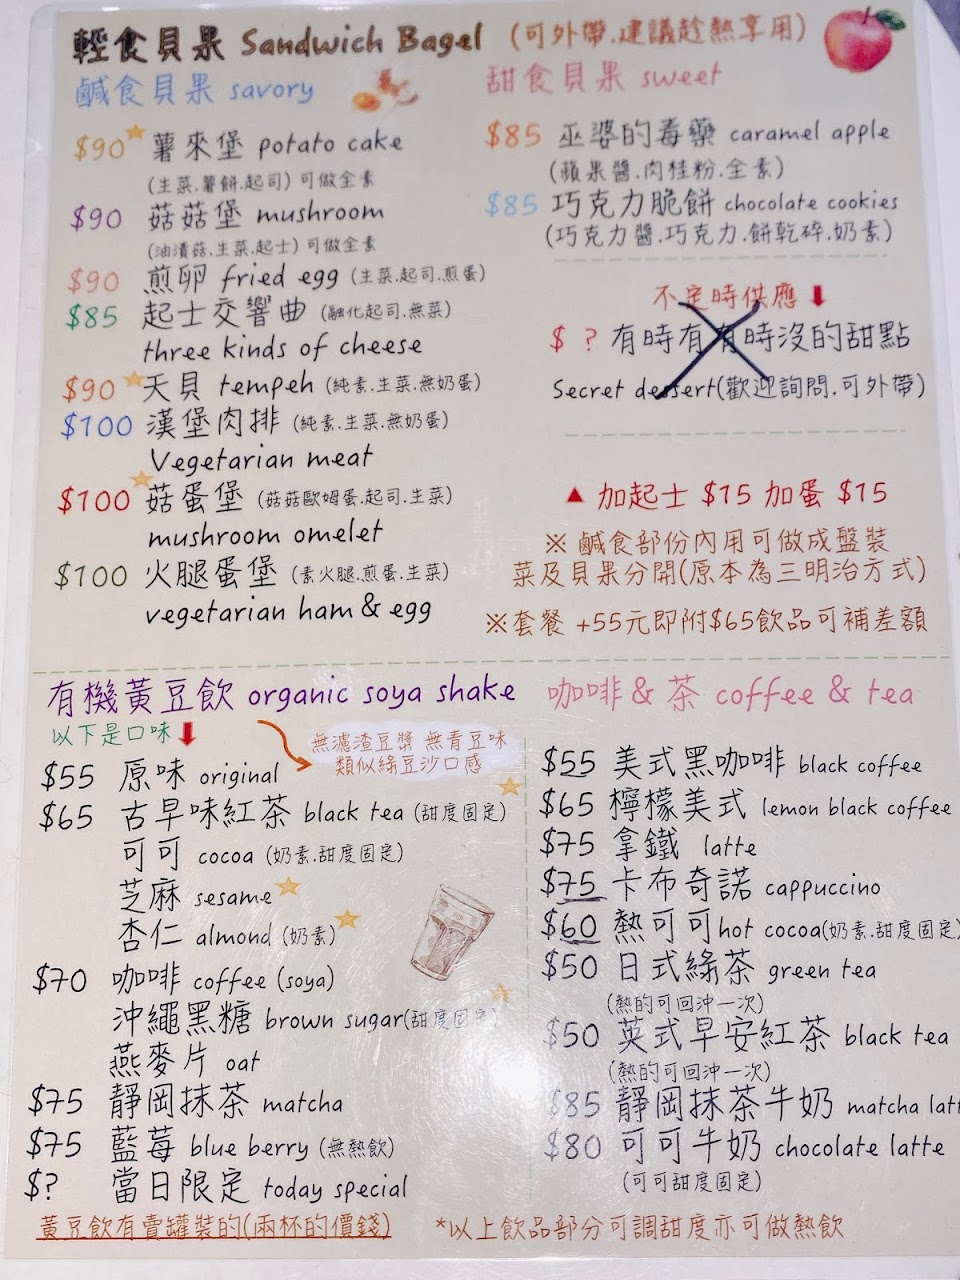 輕食貝果 Sandwich Bagel (可外帶.建議趁熱享用)
鹹食貝果 savory
$90 薯來堡 potato cake
(生菜.薯餅.起司) 可做全素
$90 菇菇堡 mushroom
(油漬菇.生菜.起士) 可做全素
$90 煎卵 fried egg (生菜.起司.煎蛋)
$85 起士交響曲 (融化起司.無菜)
three kinds of cheese
$90 天貝 tempeh (純素.生菜.無奶蛋)
$100 漢堡肉排 (純素.生菜.無奶蛋)
Vegetarian meat
$100 菇蛋堡 (菇菇歐姆蛋.起司.生菜)
mushroom omelet
$100 火腿蛋堡 (素火腿.煎蛋.生菜)
vegetarian ham & egg
甜食貝果 sweet
$85 巫婆的毒藥 caramel apple
(蘋果醬.肉桂粉.全素)
$85 巧克力脆餅 chocolate cookies
(巧克力醬.巧克力.餅乾碎.奶素)
不定時供應
$ ? 有時有有時沒的甜點
Secret dessert(歡迎詢問.可外帶)
▲ 加起士 $15 加蛋 $15
※ 鹹食部份內用可做成盤裝
菜及貝果分開(原本為三明治方式)
※套餐 +55元即附$65飲品可補差額
有機黃豆飲 organic soya shake
以下是口味
無濾渣豆漿 無青豆味
類似綠豆沙口感
$55 原味 original
$65 古早味紅茶 black tea (甜度固定)
可可 cocoa (奶素.甜度固定)
芝麻 sesame
杏仁 almond (奶素)
$70 咖啡 coffee (soya)
沖繩黑糖 brown sugar(甜度固定)
燕麥片 oat
$75 靜岡抹茶 matcha
$75 藍莓 blue berry (無熱飲)
$? 當日限定 today special
黃豆飲有賣罐裝的(兩杯的價錢)
咖啡 & 茶 coffee & tea
$55 美式黑咖啡 black coffee
$65 檸檬美式 lemon black coffee
$75 拿鐵 latte
$75 卡布奇諾 cappuccino
$60 熱可可 hot cocoa(奶素.甜度固定)
$50 日式綠茶 green tea
(熱的可回沖一次)
$50 英式早安紅茶 black tea
(熱的可回沖一次)
$85 靜岡抹茶牛奶 matcha latt
$80 可可牛奶 chocolate latte
(可可甜度固定)
*以上飲品部分可調甜度亦可做熱飲